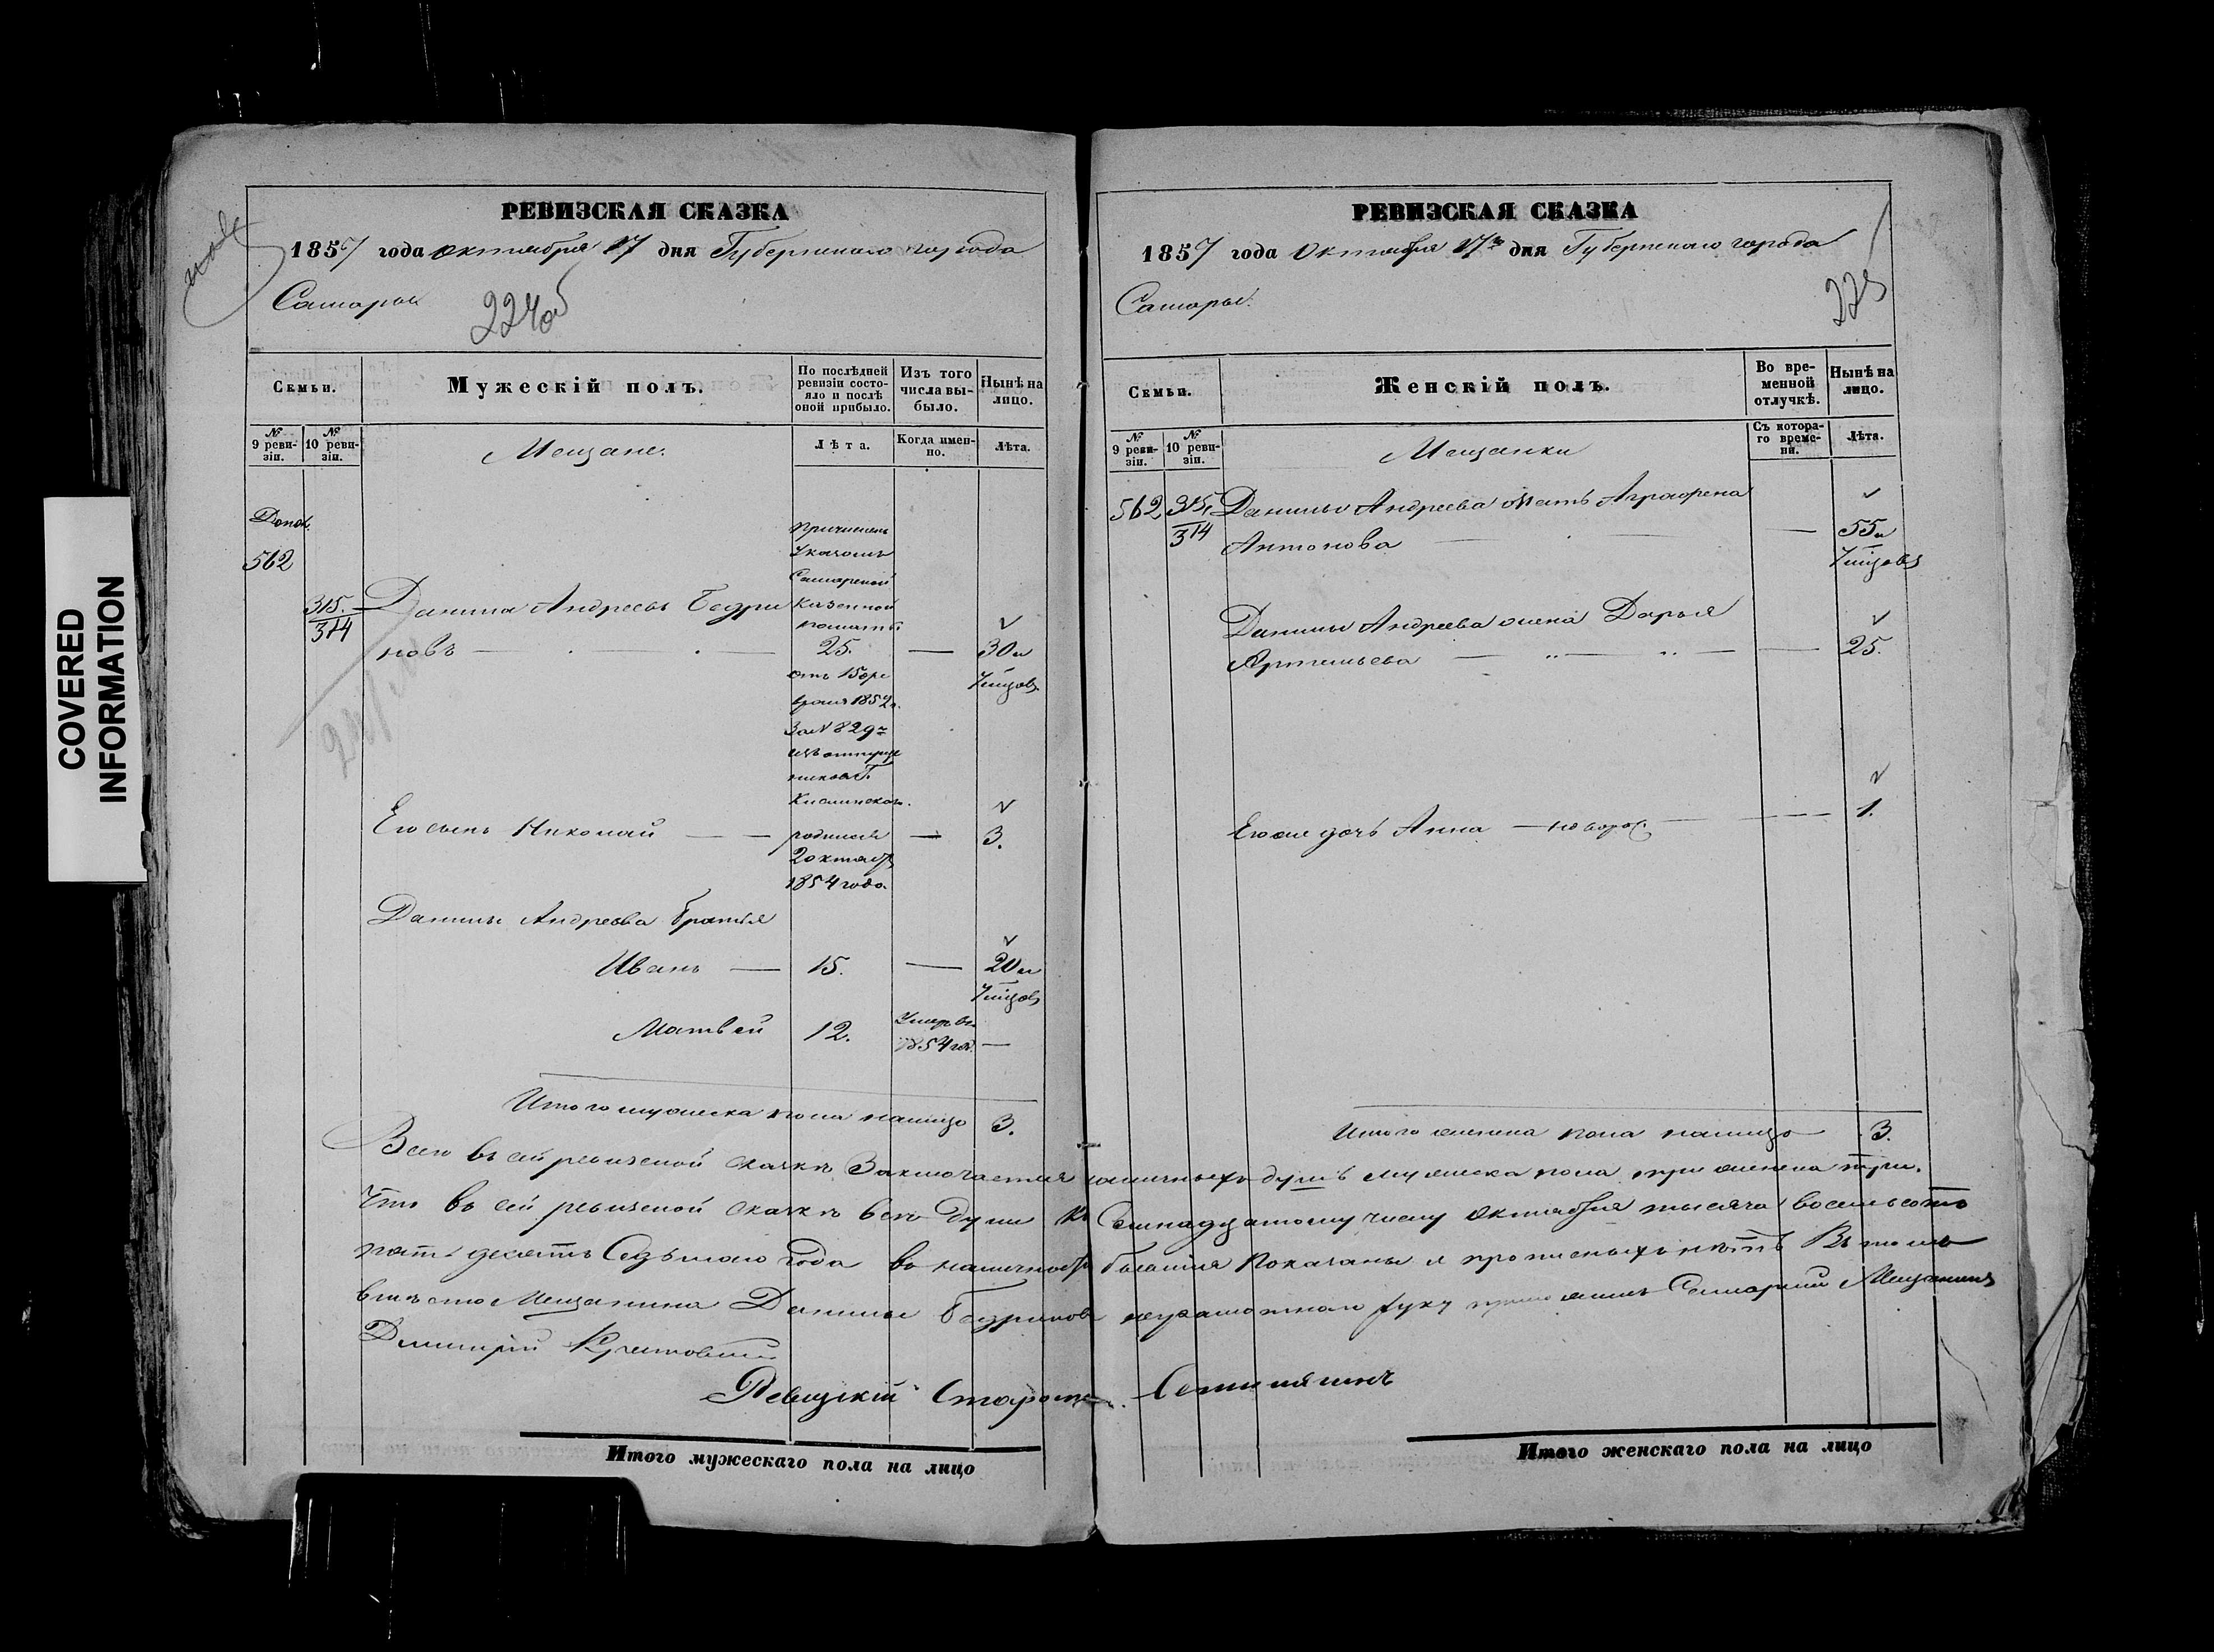 COVERED
INFORMATION
РЕВИЗСКАЯ СКАЗКА
1857 года октября 17 дня Губернского города
Самары
224об
Семьи.
Мужескій полъ.
По послѣдней ревизіи состояло и послѣ оной прибыло.
Изъ того числа выбыло.
Нынѣ на лицо.
№ 9 ревизіи.
№ 10 ревизіи.
Мещане.
Лѣта.
Когда именно.
Лѣта.
Допол.
562
причислен
Указомъ
Самарской
315.
314
Данила Андреевъ Бедри
казенной
палаты
новъ
25.
30 и
отъ 15 фе
враля 1852 г.
За № 829
Его сынъ Николай
родился
3.
2 октяб
1854 года.
Данилы Андреева братья
Иванъ
15.
20 и
Матвей
12.
Умер въ
1854 год.
Итого мужеска пола налицо
3.
РЕВИЗСКАЯ СКАЗКА
1857 года Октября 17го дня Губернского города
Самары.
225
Семьи.
Женскій полъ.
Во временной отлучкѣ.
Нынѣ на лицо.
№ 9 ревизіи.
№ 10 ревизіи.
Мещанки
Съ котораго времени.
Лѣта.
562
315,
314
Данилы Андреева мать Аграфена
Антонова
55 и
Данилы Андреева жена Дарья
Артемьева
25.
Его же дочь Анна
новорож.
1.
Итого женска пола налицо
3.
Всего въ сей ревизской сказкѣ Заключается наличныхъ душъ мужеска пола три женска три.
Что въ сей ревизской сказкѣ всѣ души къ Семнадцатому числу октября тысяча восемьсотъ
пятьдесятъ Седьмаго года въ наличности бывшія показаны и прописныхъ нѣтъ Въ томъ
вмѣсто Мещанина Данилы Бедринова неграмотнаго руку приложилъ Самарский Мещанинъ
Дмитрій
Ревизскій Староста
Итого мужескаго пола на лицо
Итого женскаго пола на лицо